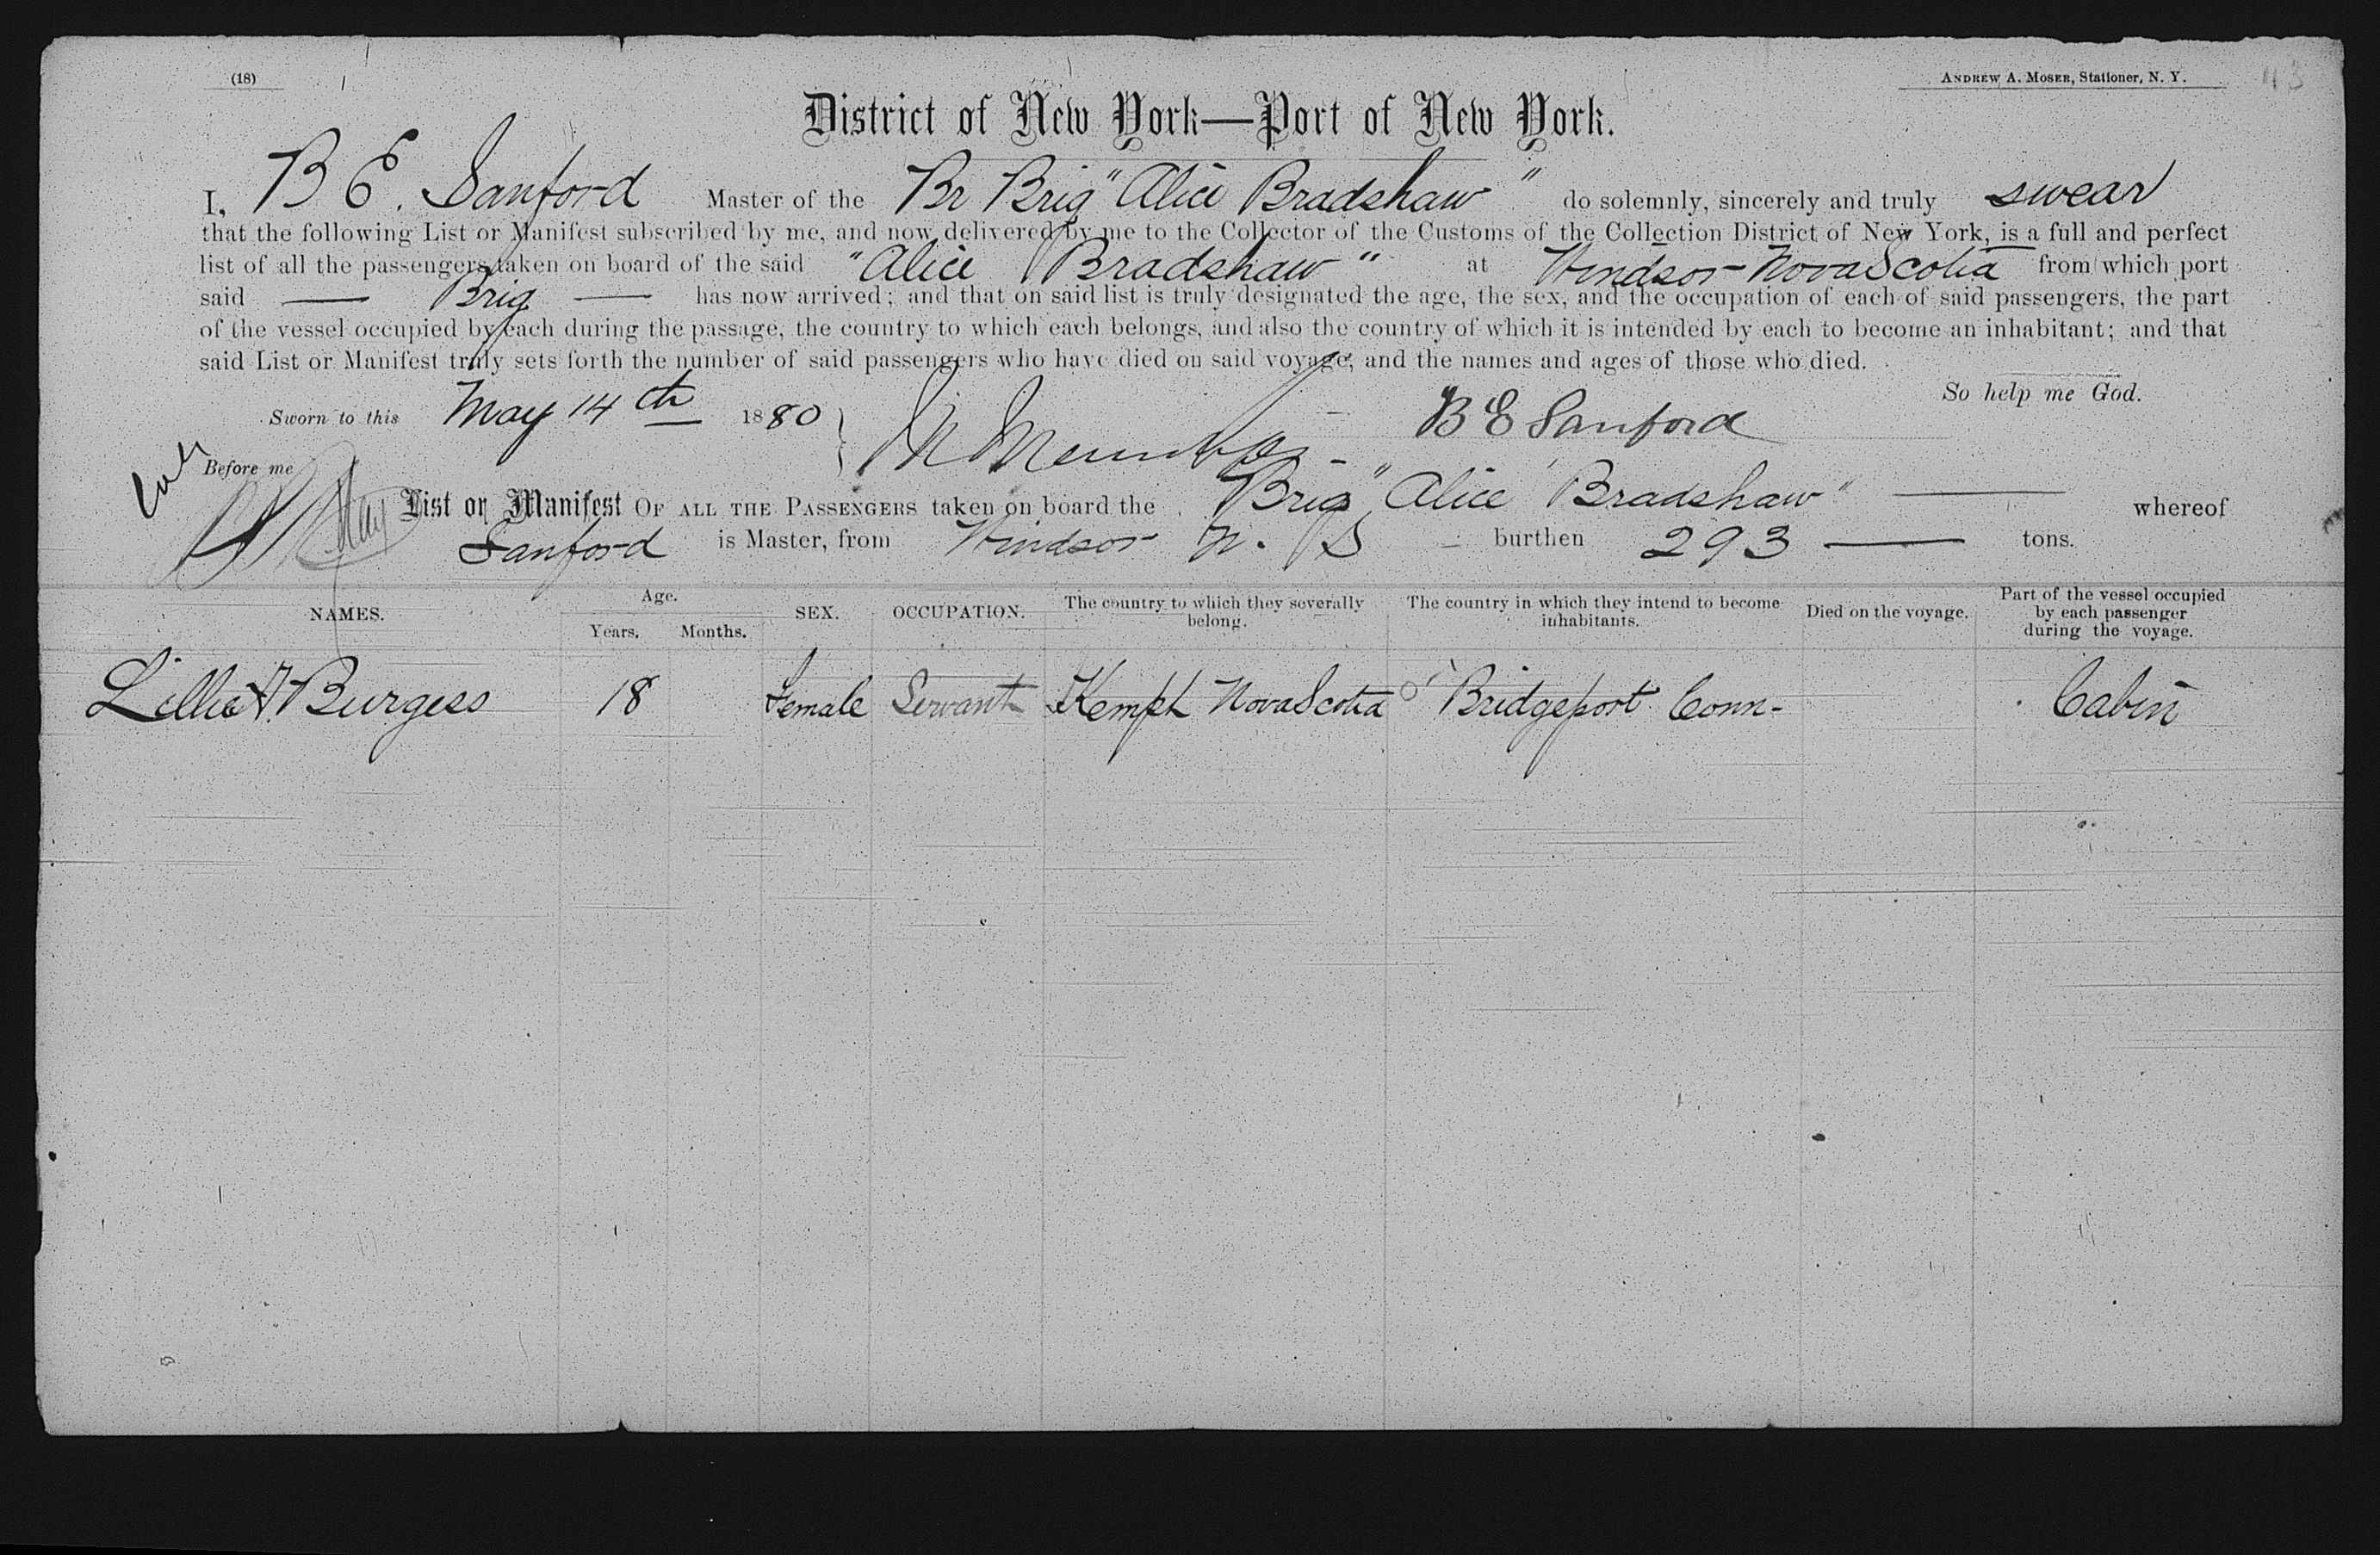 (18)
ANDREW A. MOSER, Stationer, N. Y.
43
District of New York—Port of New York.
I, B E. Sanford Master of the Br Brig "Alice Bradshaw" do solemnly, sincerely and truly swear
that the following List or Manifest subscribed by me, and now delivered by me to the Collector of the Customs of the Collection District of New York, is a full and perfect
list of all the passengers taken on board of the said "Alice Bradshaw" at Windsor Nova Scotia from which port
said — Brig — has now arrived; and that on said list is truly designated the age, the sex, and the occupation of each of said passengers, the part
of the vessel occupied by each during the passage, the country to which each belongs, and also the country of which it is intended by each to become an inhabitant; and that
said List or Manifest truly sets forth the number of said passengers who have died on said voyage, and the names and ages of those who died.
So help me God.
Sworn to this May 14th 1880
B E Sanford
Before me
List or Manifest OF ALL THE PASSENGERS taken on board the Brig "Alice Bradshaw" — whereof
Sanford is Master, from Windsor N. S burthen 293 — tons.
NAMES. Age. Years. Months. SEX. OCCUPATION. The country to which they severally belong. The country in which they intend to become inhabitants. Died on the voyage. Part of the vessel occupied by each passenger during the voyage.
Lillie A. Burgess 18 Female Servant Kempt Nova Scotia Bridgeport Conn- Cabin